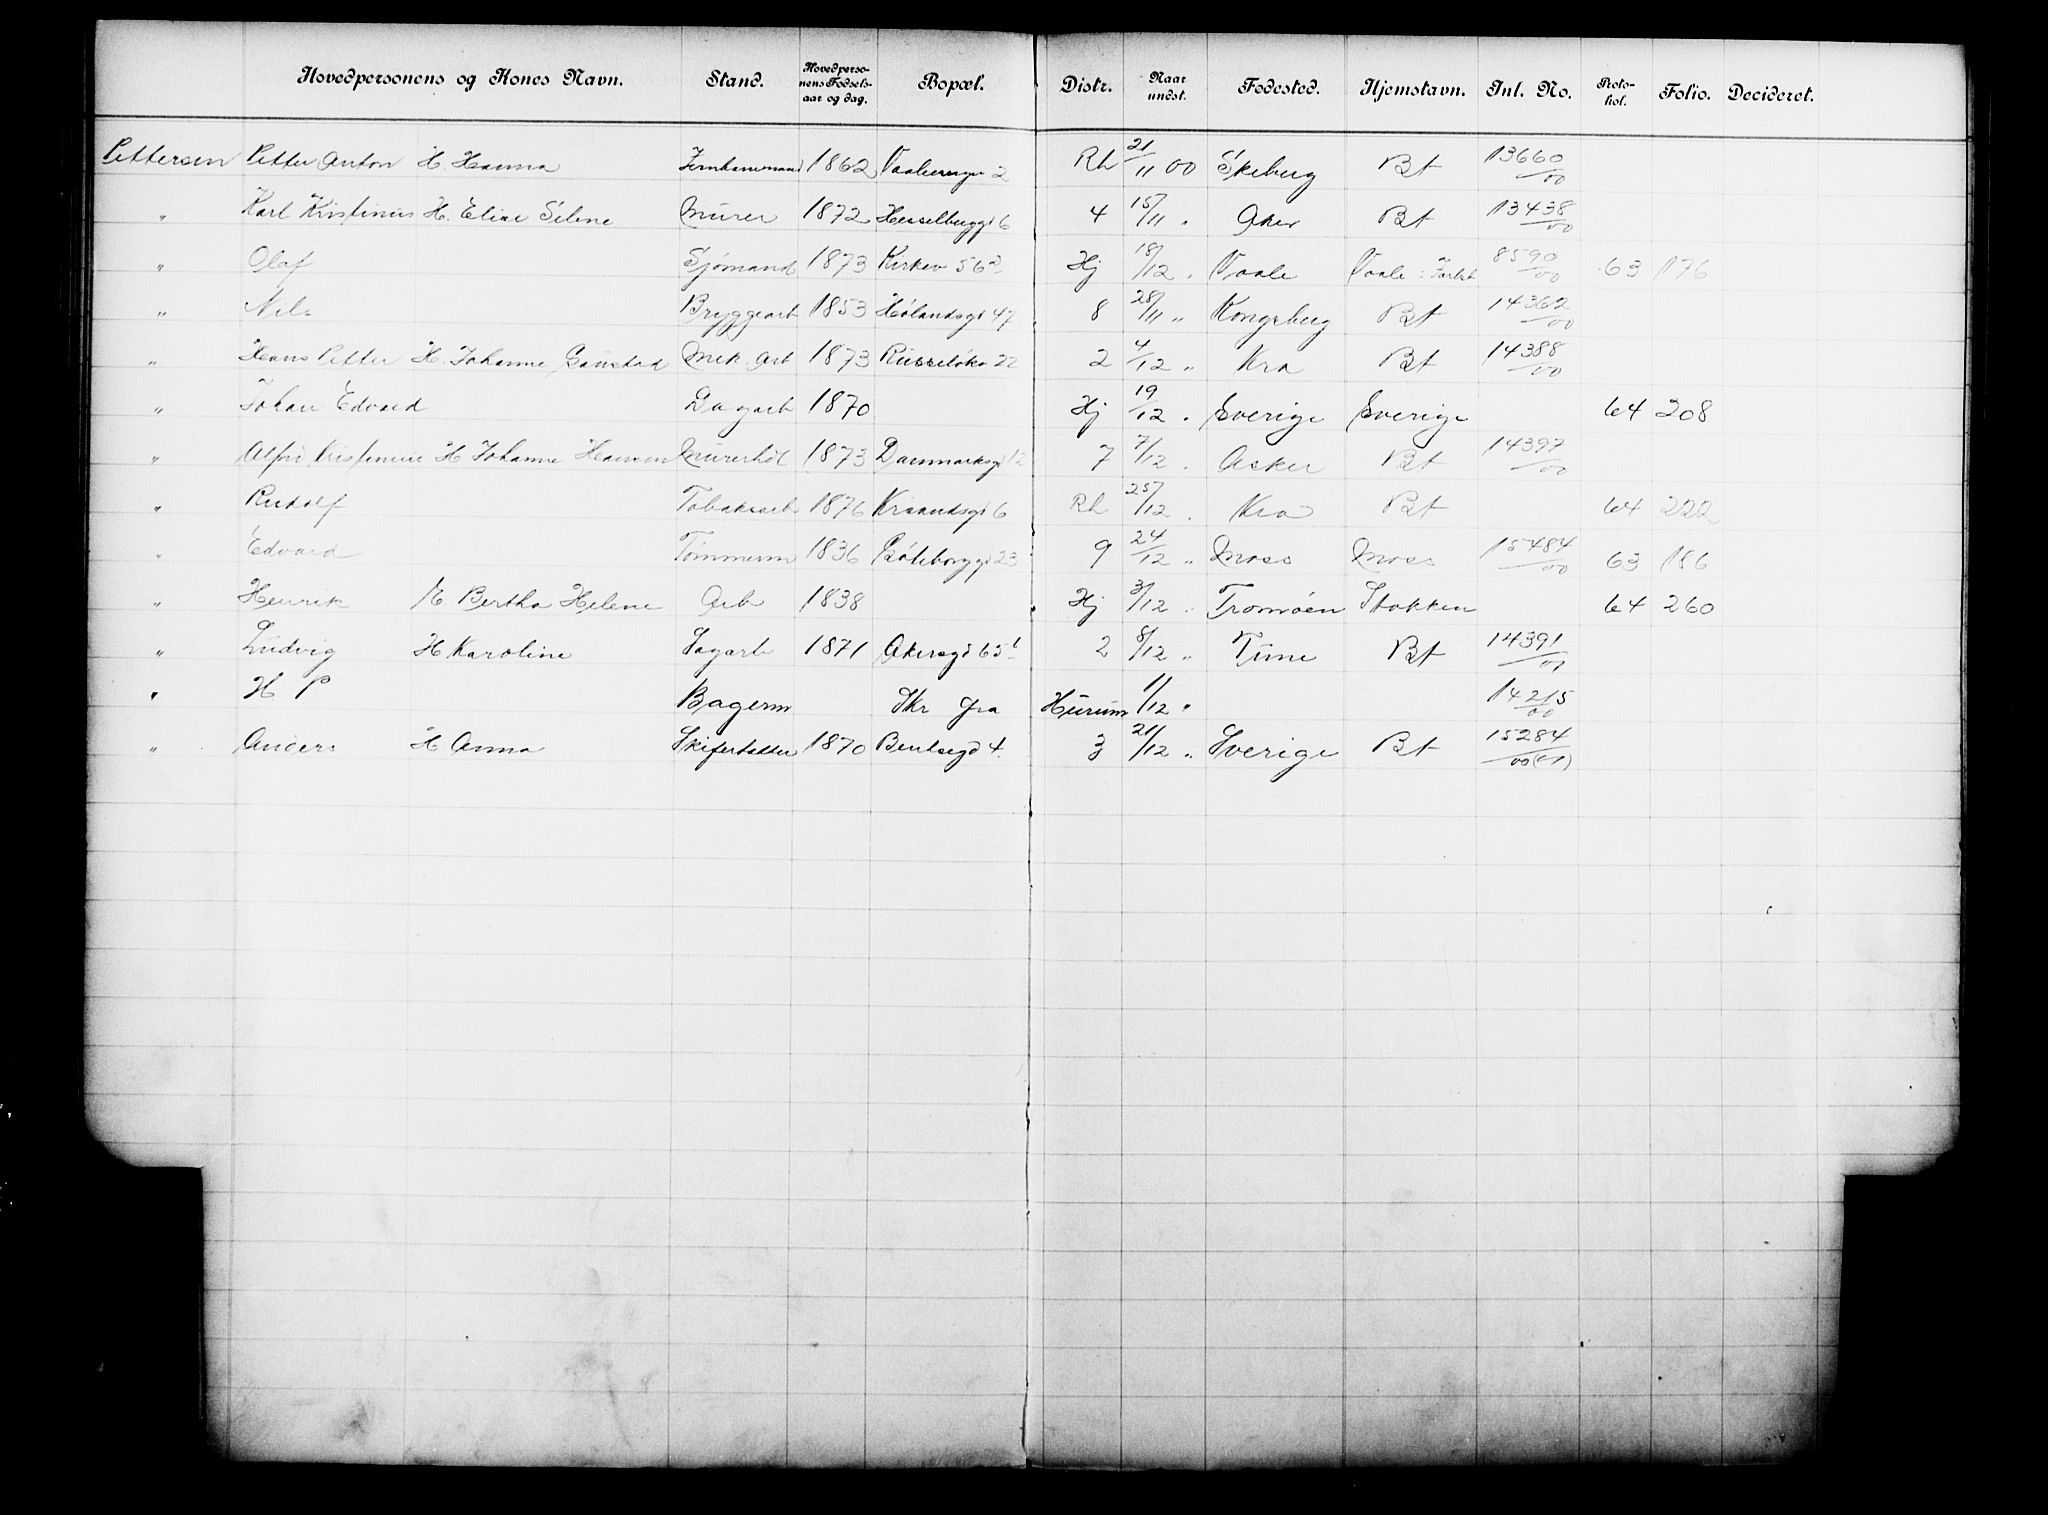 Hovedpersonens og Kones Navn. Stand. Hovedpersonens Fødselsaar og dag. Bopæl. Distr. Naar undst. Fødested. Hjemstavn. Inl. No. Protokol. Folio. Decideret.
Pettersen Petter Anton H. Hanna 1862 2 Rh 21/11 00 Skeberg Bt 13660/00
" Karl Kristinus H. Elise Seline Murer 1872 Hesselbergg 6 4 15/11 " Aker Bt 13438/00
" Olaf Sjømand 1873 Kirkev 56 Hj 18/12 " Vaale Vaale 8590/00 63 176
" Nils Bryggearb 1853 Hølandsgd 47 8 28/11 " Kongsberg Bt 14362/00
" Hans Petter H. Johanne Gaustad Mek. Arb 1873 Russeløkv 22 2 4/12 " Kra Bt 14388/00
" Johan Edvard Dagarb 1870 Hj 19/12 " Sverige Sverige 64 208
" Alfr Kristinius H Johanne Hansen 1873 Danmarksgd 12 7 7/12 " Asker Bt 14397/00
" Rudolf Tobaksarb 1876 Krsandsgd 6 Rh 25/12 " Kra Bt 64 222
" Edvard Tømmerm 1836 Gøteborggd 23 9 24/12 " Moss Moss 15484/00 63 186
" Henrik E Bertha Helene Arb 1838 Hj 3/12 " Tromøen Stokken 64 260
" Ludvig H Karoline Sagarb 1871 Akersgd 65 2 8/12 " Time Bt 14391/01
" H P Bagerm Skr fra Hurum 1/12 " 14215/00
" Anders H Anna 1870 Bentsegd 4. 3 21/12 " Sverige Bt 15284/00(01)